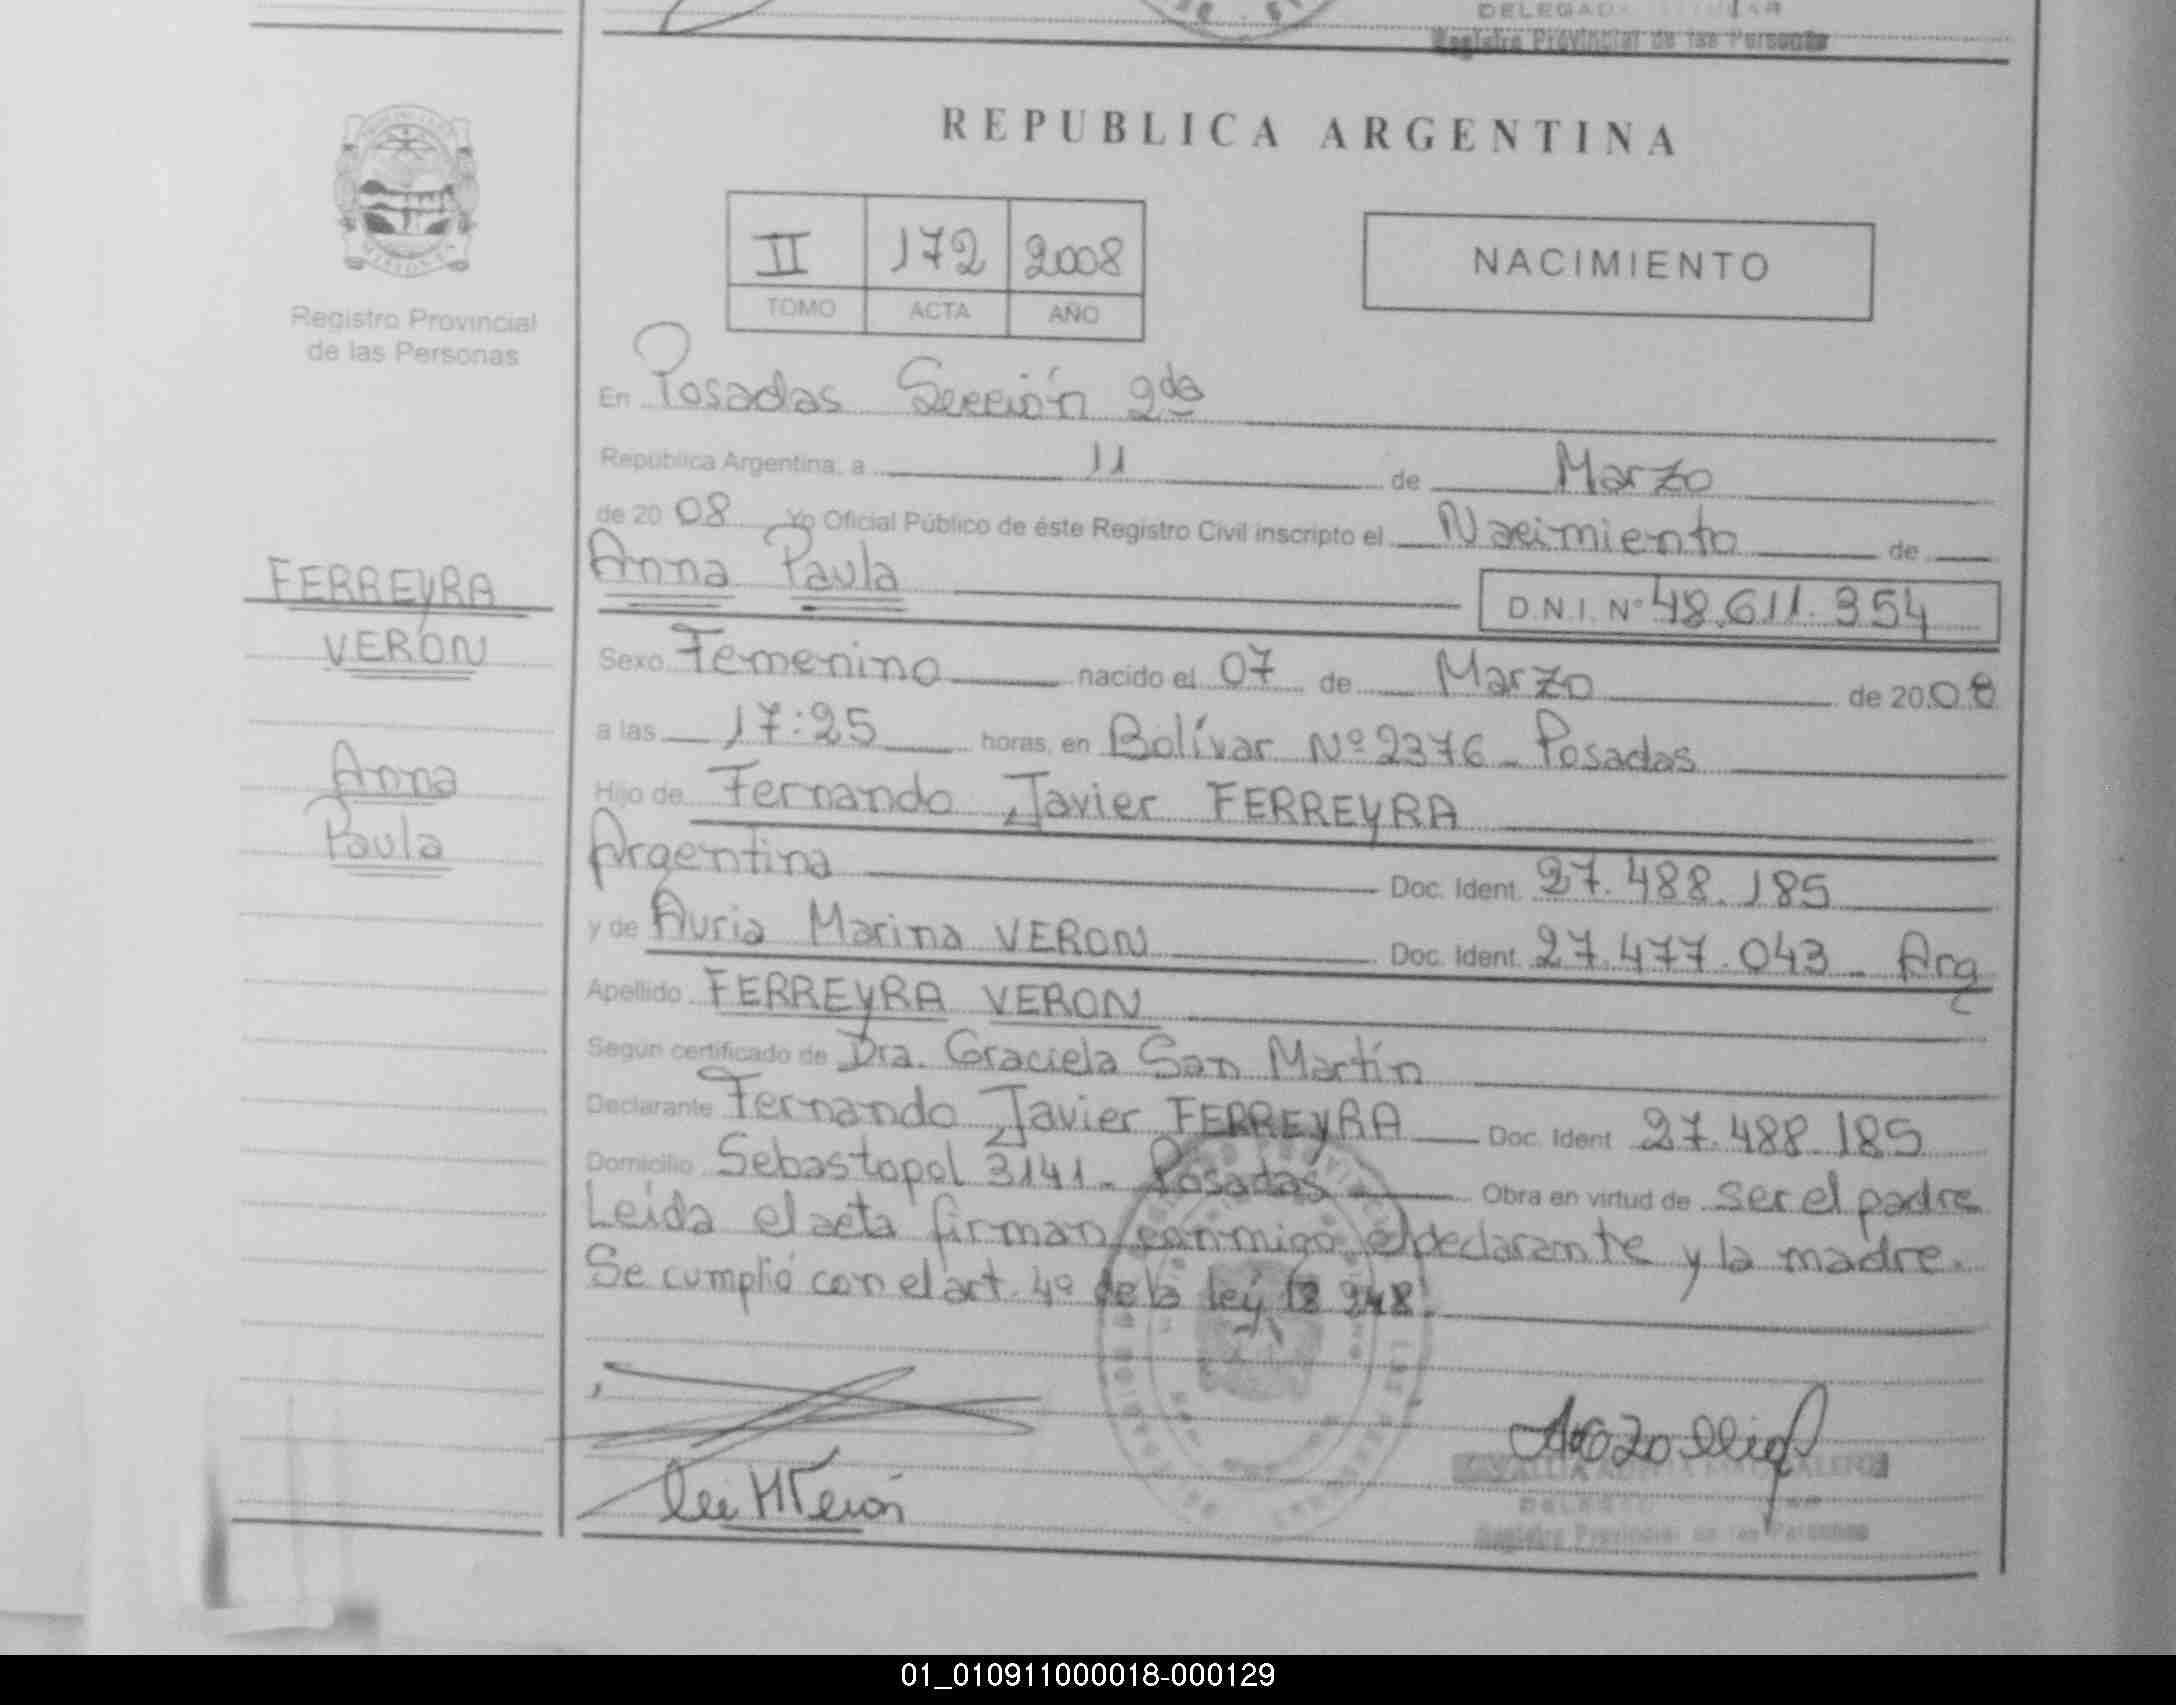 DELEGADA TITULAR
Registro Provincial de las Personas
REPUBLICA ARGENTINA
II 172 2008
TOMO ACTA AÑO
NACIMIENTO
Registro Provincial
de las Personas
En Posadas Sección 2da
República Argentina, a 11 de Marzo
de 2008 Yo Oficial Público de éste Registro Civil inscripto el Nacimiento de
FERREYRA
VERON
Anna
Paula
Anna Paula D.N.I. Nº 48.611.354
Sexo Femenino nacido el 07 de Marzo de 2008
a las 17:25 horas, en Bolívar Nº 2376 - Posadas
Hijo de Fernando Javier FERREYRA
Argentina Doc. Ident. 27.488.185
y de Auria Marina VERON Doc. Ident. 27.477.043 - Arg
Apellido FERREYRA VERON
Según certificado de Dra. Graciela San Martín
Declarante Fernando Javier FERREYRA Doc. Ident 27.488.185
Domicilio Sebastopol 3141 - Posadas Obra en virtud de ser el padre
Leída el acta firman conmigo el declarante y la madre.
Se cumplió con el art. 4º de la ley 18 248.
Registro Provincial de las Personas
01_010911000018-000129